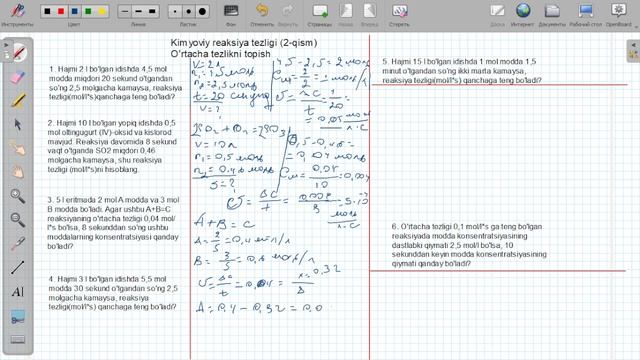 Инструменты
Цвет
Линия
Ластик
Фон
Отменить
Страницы
Назад
Вперед
Стереть
Доска
Интернет
Документы
Рабочий стол
OpenBoard
Kimyoviy reaksiya tezligi (2-qism)
O'rtacha tezlikni topish
1. Hajmi 2 l bo'lgan idishda 4,5 mol
modda miqdori 20 sekund o'tgandan
so'ng 2,5 molgacha kamaysa, reaksiya
tezligi(mol/l*s)qanchaga teng bo'ladi?
2. Hajmi 10 l bo'lgan yopiq idishda 0,5
mol oltingugurt (IV)-oksid va kislorod
mavjud. Reaksiya davomida 8 sekund
vaqt o'tganda SO2 miqdori 0,46
molgacha kamaysa, shu reaksiya
tezligi (mol/l*s)ni hisoblang.
3. 5 l eritmada 2 mol A modda va 3 mol
B modda bo'ladi. Agar ushbu A+B=C
reaksiyaning o'rtacha tezligi 0,04 mol/
l*s bo'lsa, 8 sekunddan so'ng ushbu
moddalarning konsentratsiyasi qanday
bo'ladi?
4. Hajmi 3 l bo'lgan idishda 5,5 mol
modda 30 sekund o'tgandan so'ng 2,5
molgacha kamaysa, reaksiya
tezligi(mol/l*s) qanchaga teng bo'ladi?
V=2л
t=20 секунд
V=?
4,5-2,5=2 моль
2SO2+O2=2SO3
V=10л
n1=0,5 моль
A+B=C
A=2/5=0,4 моль/л
A=0,4-0,32=0,0
5. Hajmi 15 l bo'lgan idishda 1 mol modda 1,5
minut o'tgandan so'ng ikki marta kamaysa,
reaksiya tezligi(mol/l*s) qanchaga teng bo'ladi?
6. O'rtacha tezligi 0,1 mol/l*s ga teng bo'lgan
reaksiyada modda konsentratsiyasining
dastlabki qiymati 2,5 mol/l bo'lsa, 10
sekunddan keyin modda konsentratsiyasining
qiymati qanday bo'ladi?